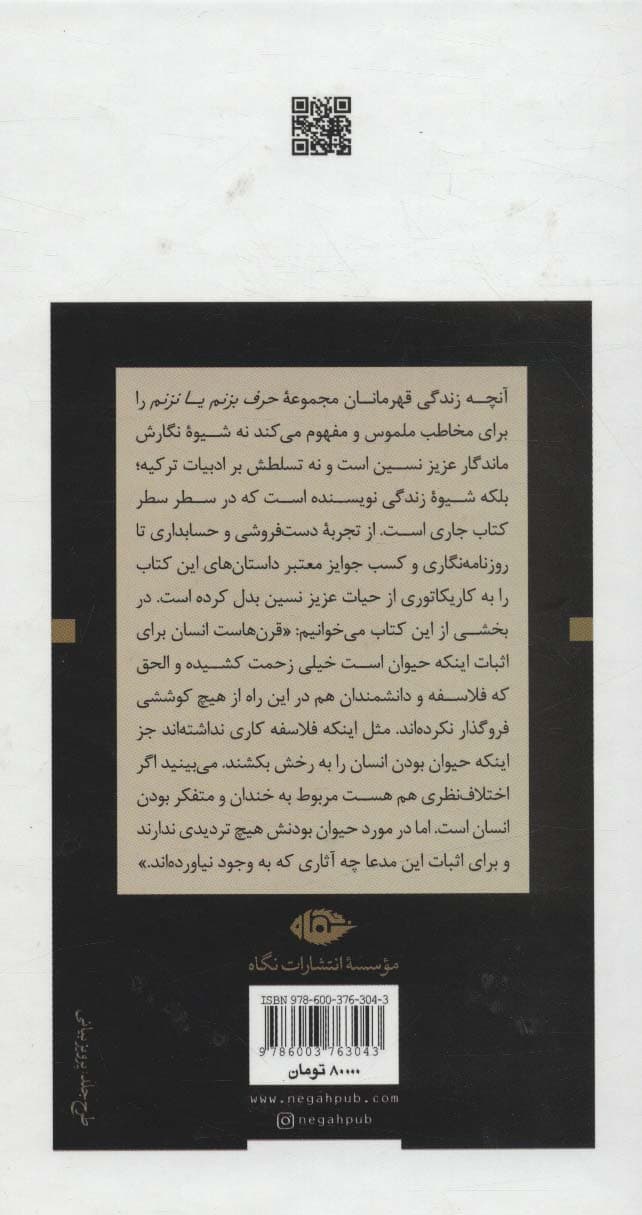 آنچه زندگی قهرمانان مجموعهٔ حرف بزنم یا نزنم را
برای مخاطب ملموس و مفهوم می‌کند نه شیوهٔ نگارش
ماندگار عزیز نسین است و نه تسلطش بر ادبیات ترکیه؛
بلکه شیوهٔ زندگی نویسنده است که در سطر سطر
کتاب جاری است. از تجربهٔ دست‌فروشی و حسابداری تا
روزنامه‌نگاری و کسب جوایز معتبر داستان‌های این کتاب
را به کاریکاتوری از حیات عزیز نسین بدل کرده است. در
بخشی از این کتاب می‌خوانیم: «قرن‌هاست انسان برای
اثبات اینکه حیوان است خیلی زحمت کشیده و الحق
که فلاسفه و دانشمندان هم در این راه از هیچ کوششی
فروگذار نکرده‌اند. مثل اینکه فلاسفه کاری نداشته‌اند جز
اینکه حیوان بودن انسان را به رخش بکشند. می‌بینید اگر
اختلاف‌نظری هم هست مربوط به خندان و متفکر بودن
انسان است. اما در مورد حیوان بودنش هیچ تردیدی ندارند
و برای اثبات این مدعا چه آثاری که به وجود نیاورده‌اند.»
نگاه
مؤسسهٔ انتشارات نگاه
ISBN 978-600-376-304-3
9 786003 763043
۸۰۰۰۰ تومان
www.negahpub.com
negahpub
طرح جلد: پرویز بیانی